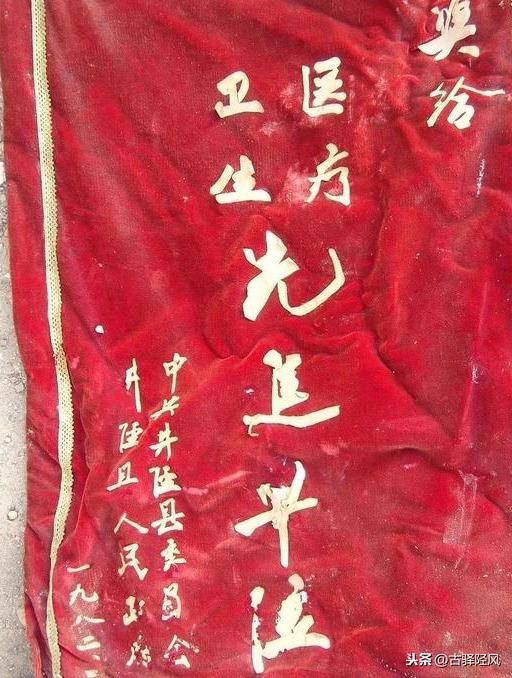 奖给
医疗
卫生
先进单位
中共井陉县委员会
井陉县人民政府
一九八二
头条 @古驿陉风